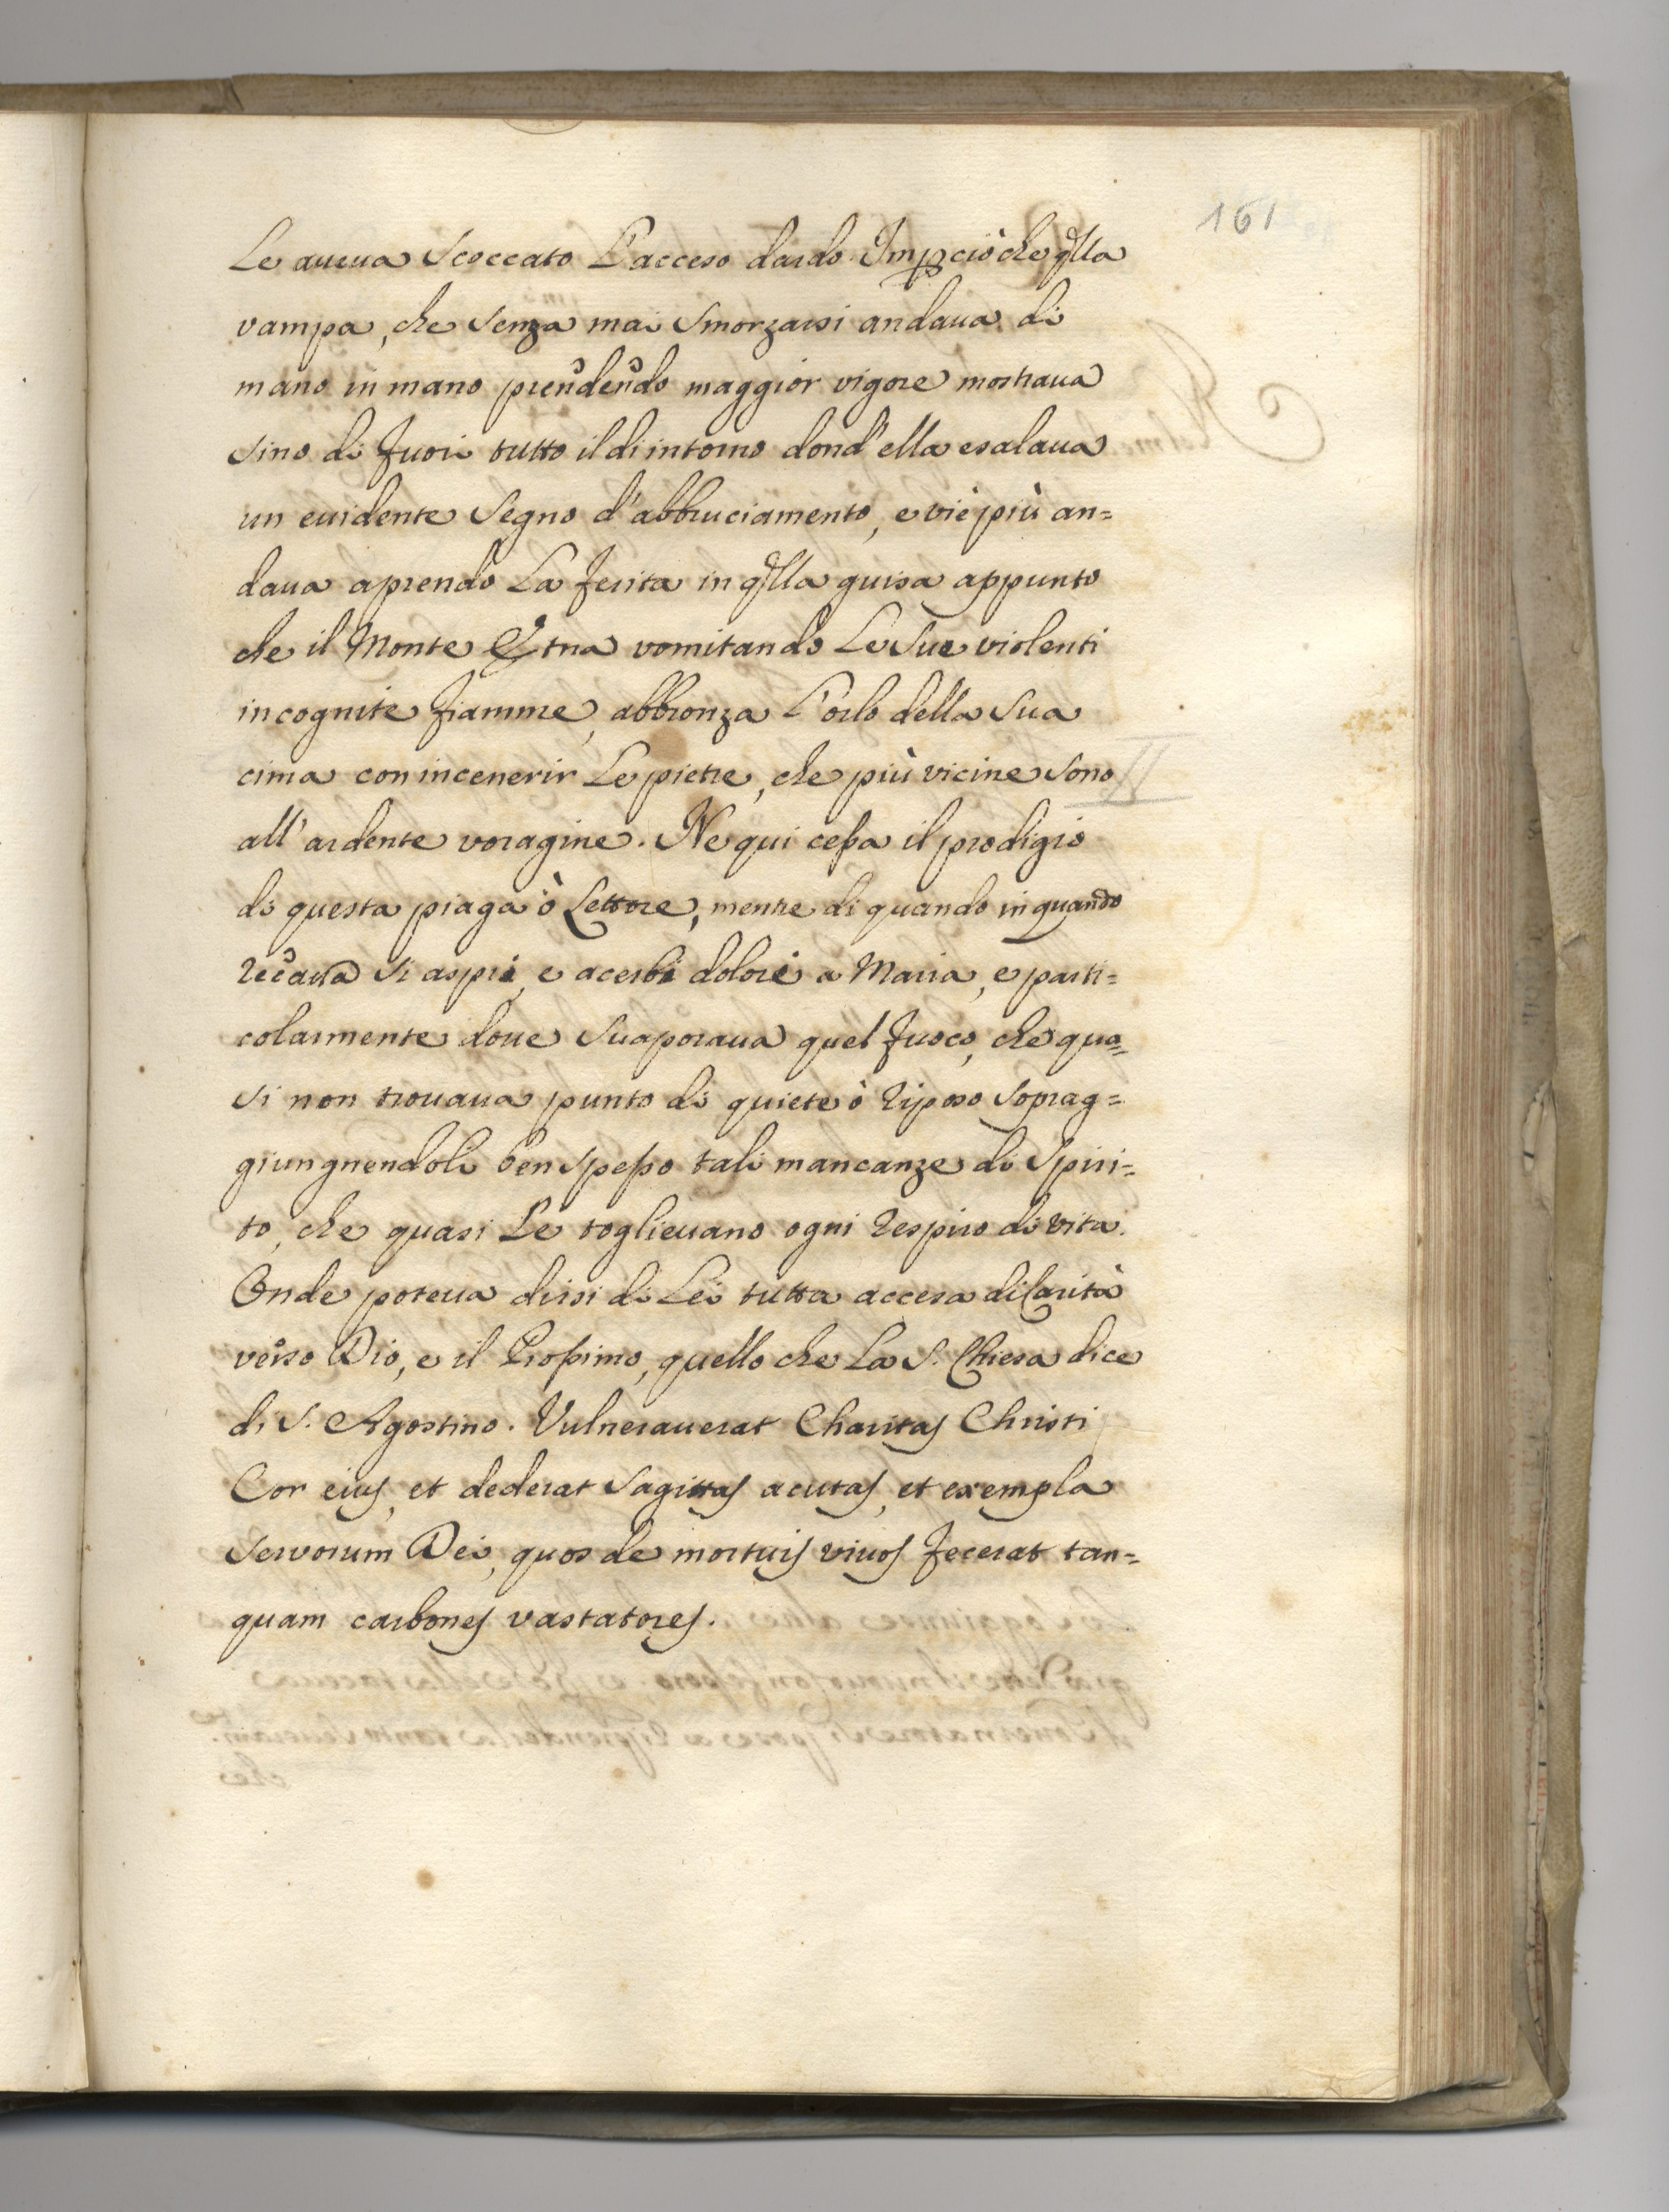 161
Le aueua Scoccato L'acceso dardo. Imꝑciòche qlla
vampa, che senza mai Smorzarsi andaua di
mano in mano prendendo maggior vigore mostraua
sino di fuori tutto il di intorno dond'ella esalaua
un euidente Segno d'abbruciamento, e viè più an=
daua aprendo La ferita in qlla guisa appunto
che il Monte Etna vomitando Le Sue violenti
incognite fiamme, abbronza L'orlo della Sua
cima con incenerir Le pietre, che più vicine sono
II
all'ardente voragine. Ne qui ceßa il prodigio
di questa piaga ò Lettore, mentre di quando in quando
recaua si aspri, e acerbi dolori a Maria, e parti=
colarmente doue Suaporaua quel fuoco, che qua=
si non trouaua punto di quiete ò riposo soprag=
giungnendoli ben speßo tali mancanze di Spiri=
to, che quasi Le toglieuano ogni respiro di vita.
Onde poteua dirsi di Lei tutta accesa di Carità
verso Dio, e il Proßimo, quello che La S. Chiesa dice
di S. Agostino. Vulnerauerat Charitas Christi
Cor eius, et dederat Sagittas acutas, et exempla
Servorum Dei, quos de mortuis viuos fecerat tan=
quam carbones vastatores.